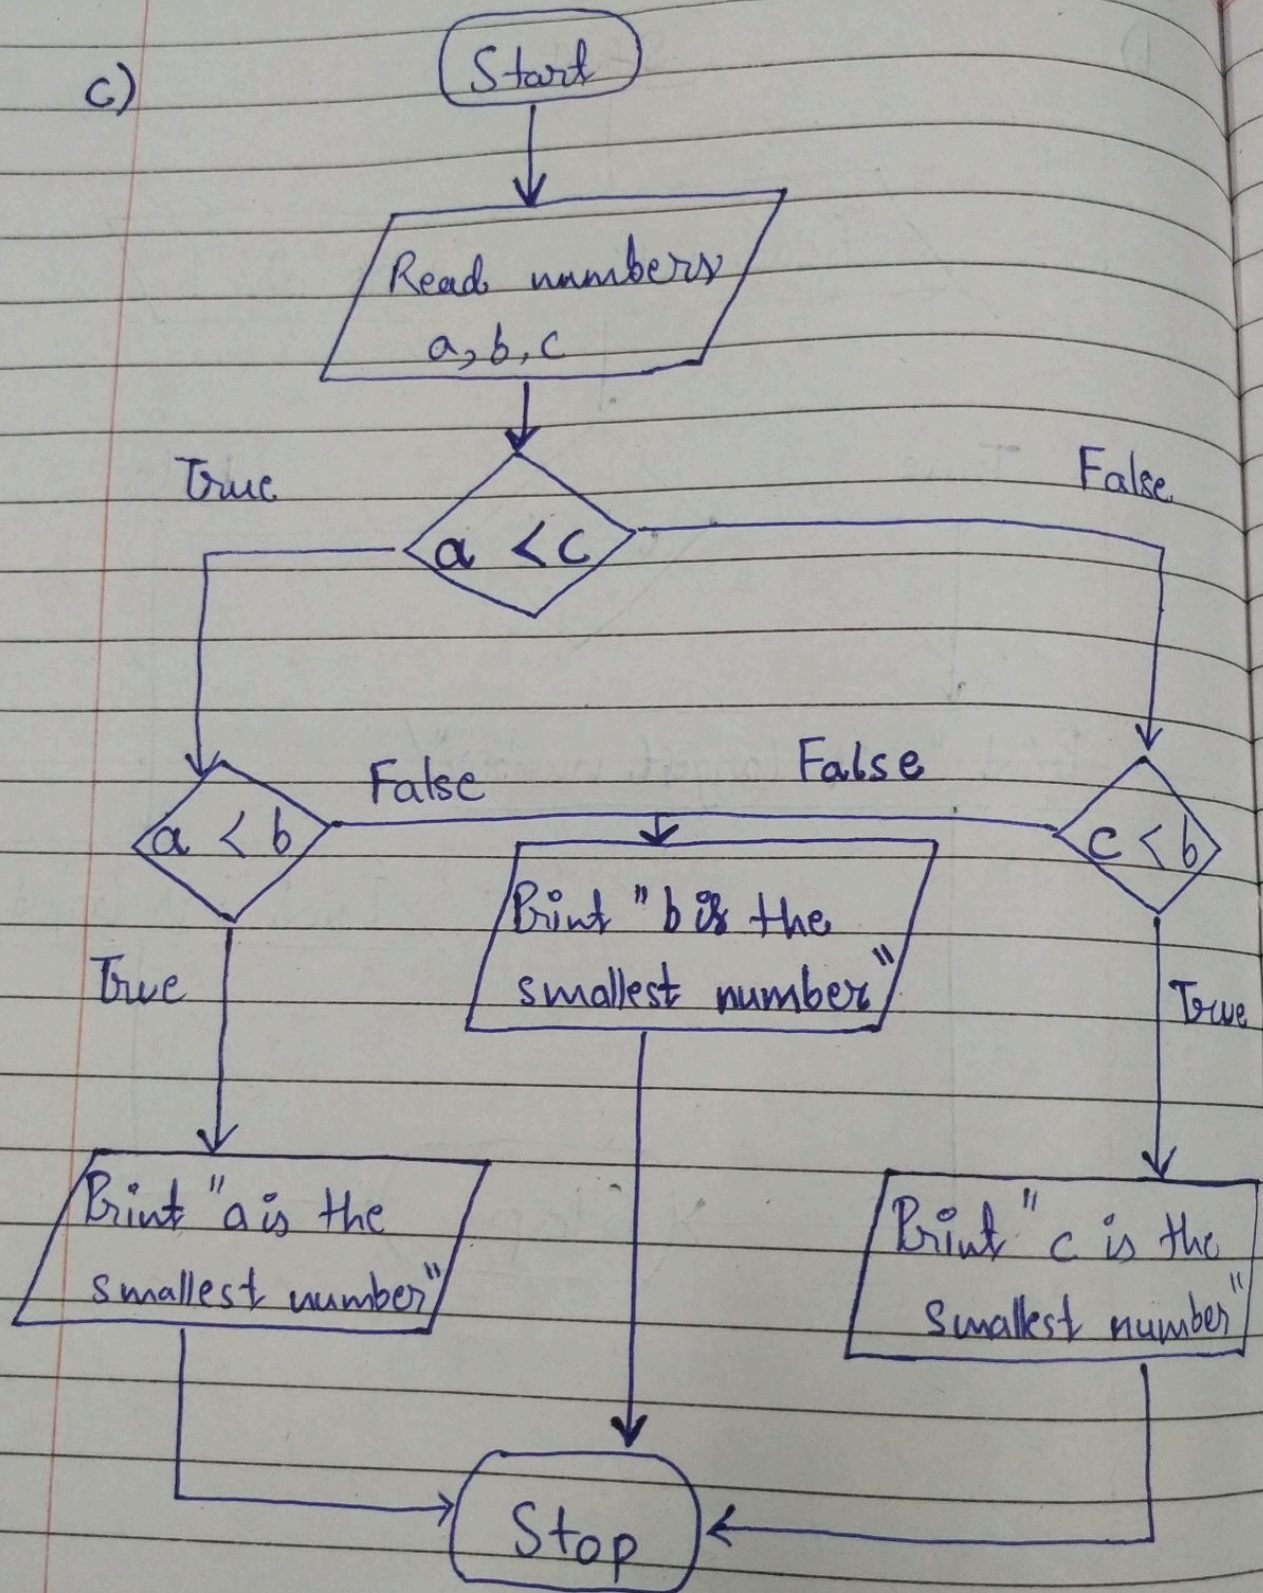 c)
Start
Read numbers
a, b, c
True
False
a < c
False
False
a < b
c < b
Print "b is the
smallest number"
True
True
Print "a is the
smallest number"
Print "c is the
smallest number"
Stop